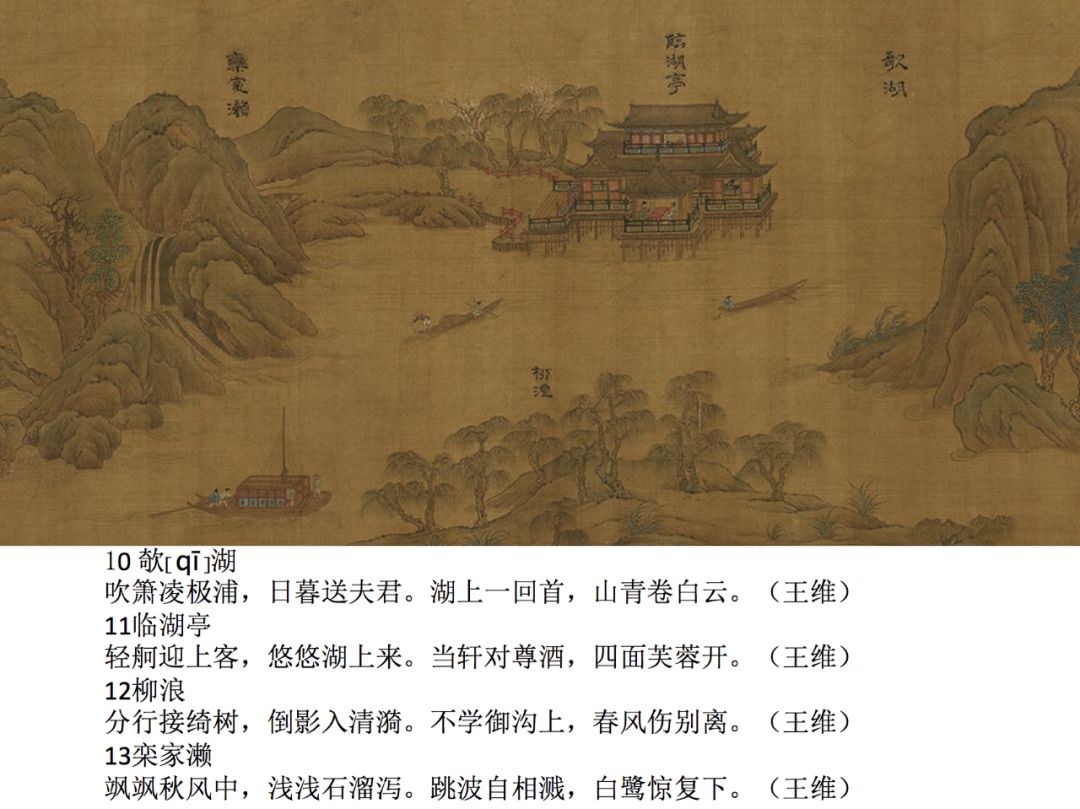 歌湖
臨湖亭
欒家瀨
10 欹[qī]湖
吹箫凌极浦，日暮送夫君。湖上一回首，山青卷白云。（王维）
11临湖亭
轻舸迎上客，悠悠湖上来。当轩对尊酒，四面芙蓉开。（王维）
12柳浪
分行接绮树，倒影入清漪。不学御沟上，春风伤别离。（王维）
13栾家濑
飒飒秋风中，浅浅石溜泻。跳波自相溅，白鹭惊复下。（王维）